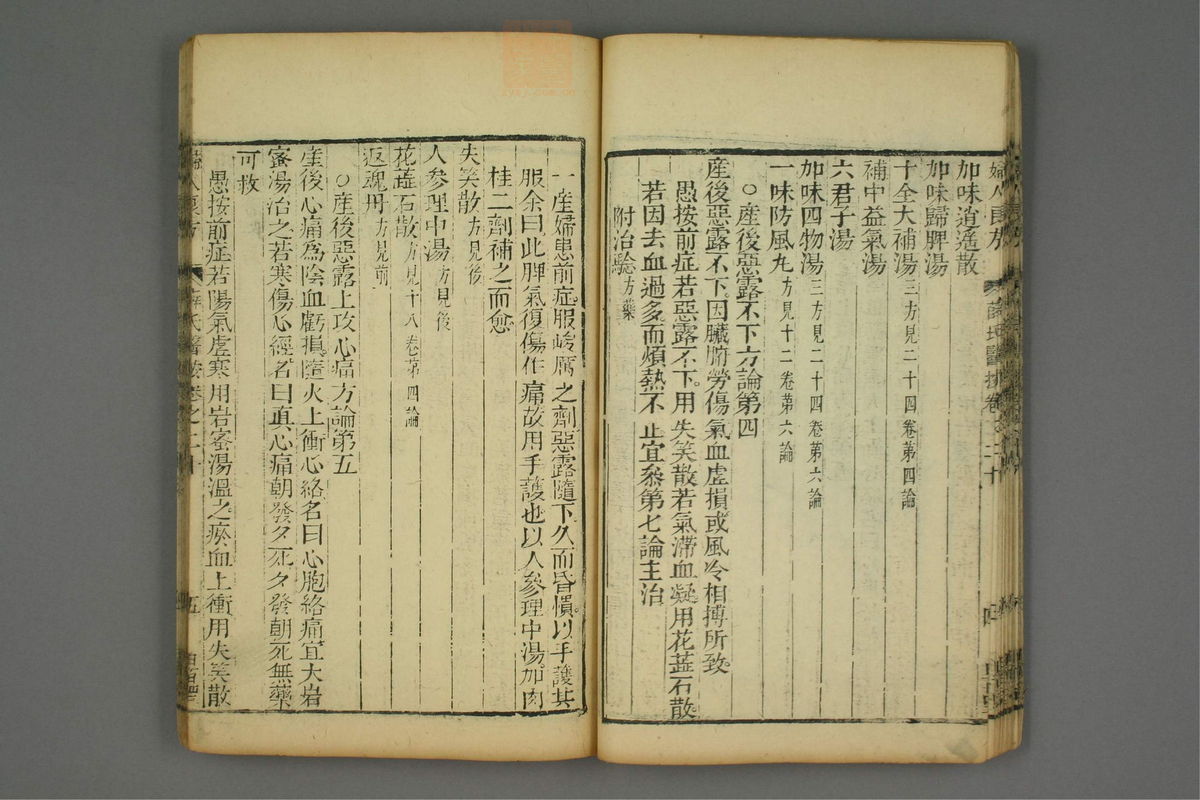 婦人良方 薛氏醫按卷之二十 四
加味逍遙散
加味歸脾湯
十全大補湯三方見二十四卷第四論
補中益氣湯
六君子湯
加味四物湯三方見二十四卷第六論
一味防風丸方見十二卷第六論
○產後惡露不下方論第四
產後惡露不下因臟腑勞傷氣血虛損或風冷相搏所致
愚按前症若惡露不下用失笑散若氣滯血凝用花蕋石散
若因去血過多而煩熱不止宜叅第七論主治
附治驗方藥
一產婦患前症服峻厲之劑惡露隨下久而昏憒以手護其
服余曰此脾氣復傷作痛故用手護也以人參理中湯加肉
桂二劑補之而愈
失笑散方見後
人參理中湯方見後
花蕋石散方見十八卷第四論
返魂丹方見前
○產後惡露上攻心痛方論第五
產後心痛爲陰血虧損隨火上衝心絡名曰心胞絡痛宜大岩
蜜湯治之若寒傷心經名曰真心痛朝發夕死夕發朝死無藥
可救
愚按前症若陽氣虛寒用岩蜜湯溫之瘀血上衝用失笑散
婦人良方 薛氏醫按卷之二十 五